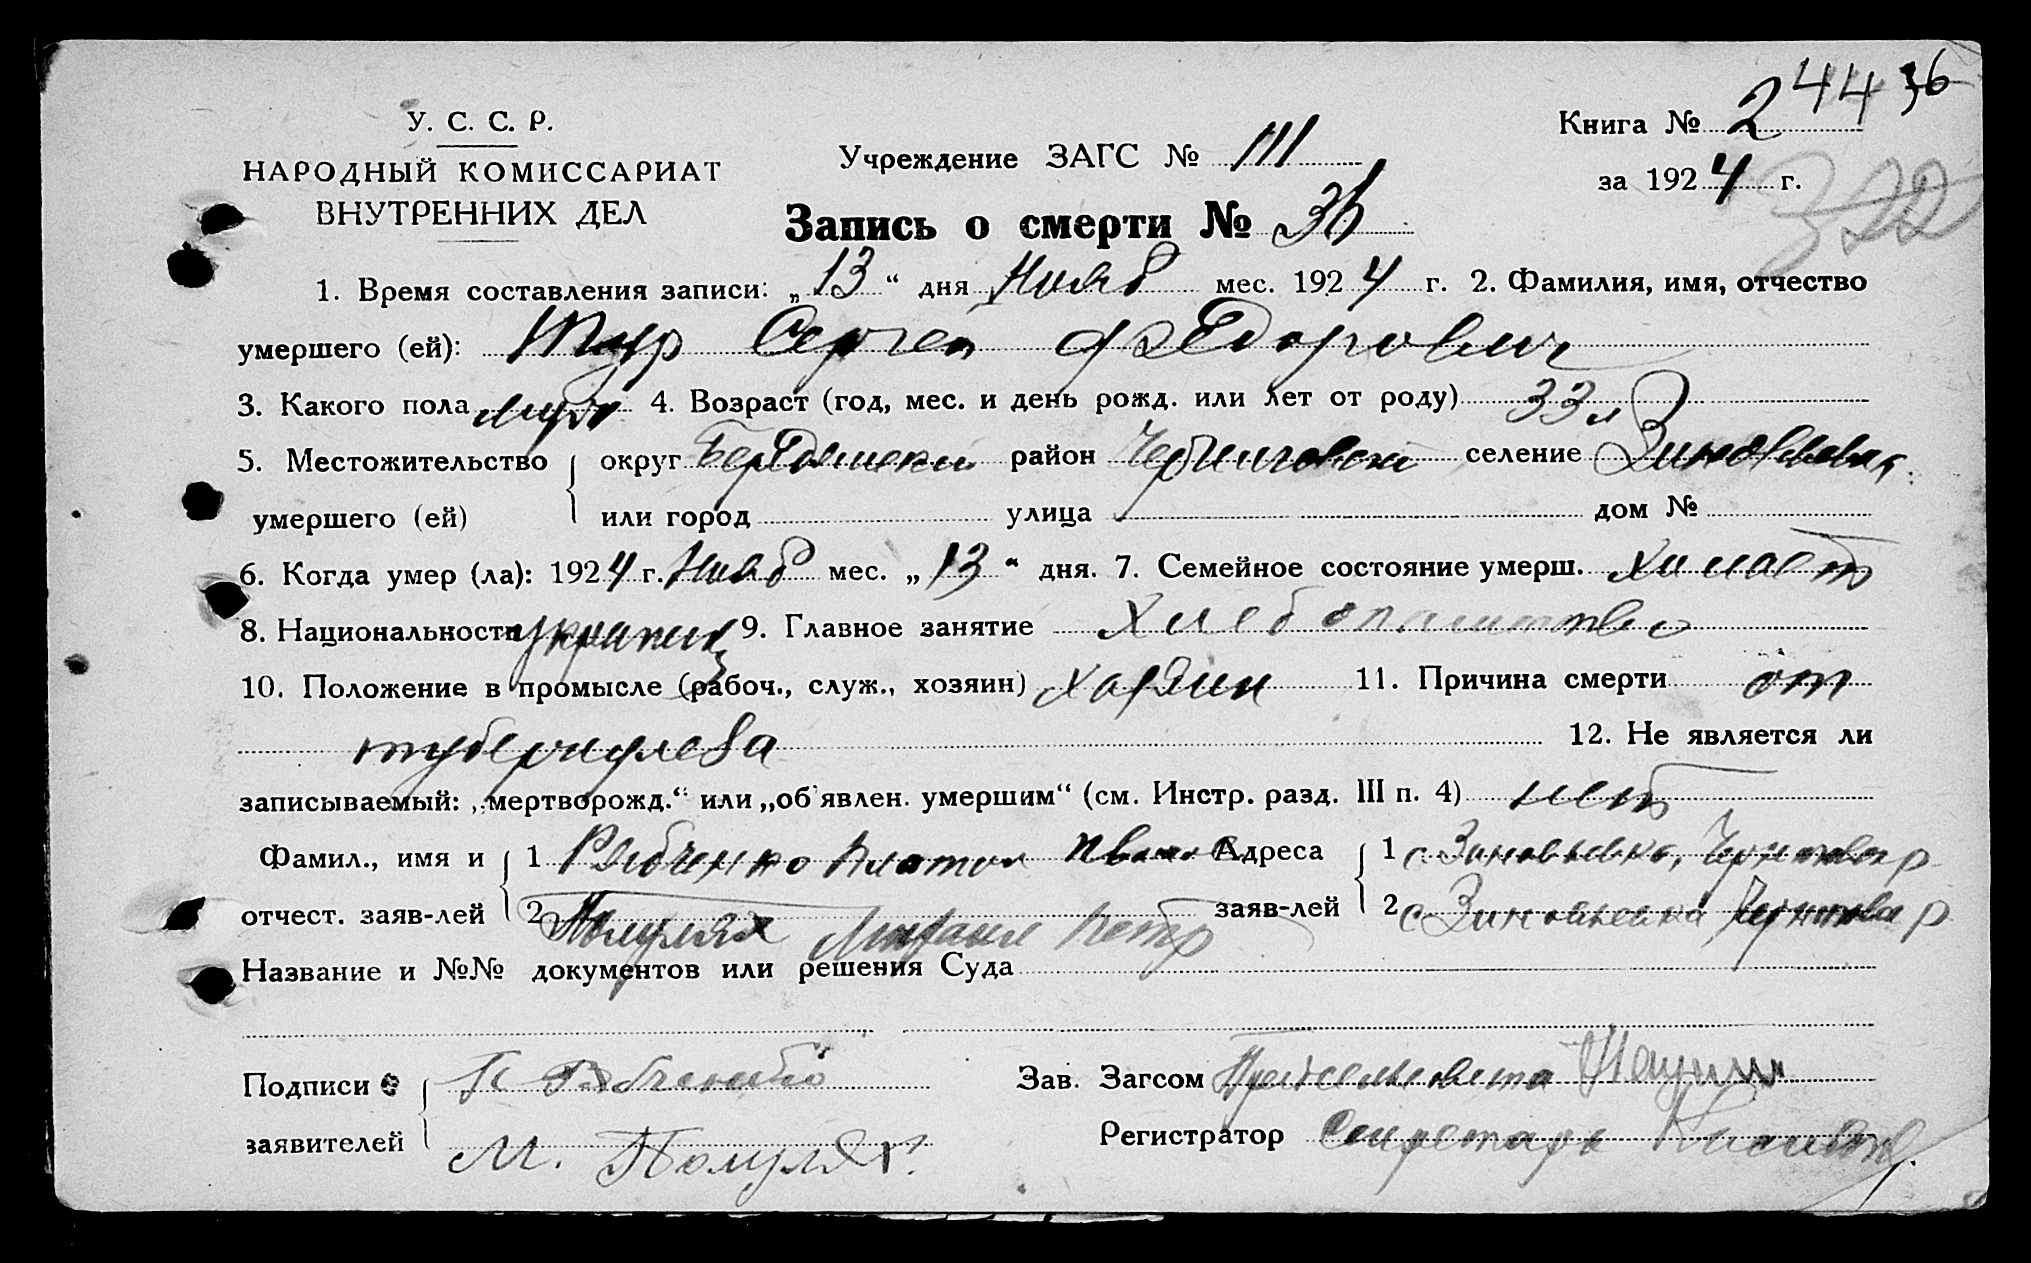 244 36
У. С. С. Р.
НАРОДНЫЙ КОМИССАРИАТ
ВНУТРЕННИХ ДЕЛ
Учреждение ЗАГС № III
Книга № 2
за 1924 г.
322
Запись о смерти № 36
1. Время составления записи: „13“ дня Нояб мес. 1924 г. 2. Фамилия, имя, отчество
умершего (ей): Сергей Федорович
3. Какого пола муж 4. Возраст (год, мес. и день рожд. или лет от роду) 33 л
5. Местожительство округ Бердянски район Черниговски селение Зиновьевка
умершего (ей) или город улица дом №
6. Когда умер (ла): 1924 г. Нояб мес. „13“ дня. 7. Семейное состояние умерш. холост
8. Национальность украинец 9. Главное занятие Хлебопашество
10. Положение в промысле (рабоч., служ., хозяин) хозяин 11. Причина смерти от
туберкулеза 12. Не является ли
записываемый: „мертворожд.“ или „об'явлен. умершим“ (см. Инстр. разд. III п. 4) нет
Фамил., имя и 1 Рябченко Платон Иванов Адреса 1 с. Зиновьевка, р
отчест. заяв-лей 2 Полулях Михаил Петр заяв-лей 2 с Зиновьевка р
Название и №№ документов или решения Суда
Подписи П Рябченко Зав. Загсом Предсельсовета
заявителей М. Полулях. Регистратор Секретарь